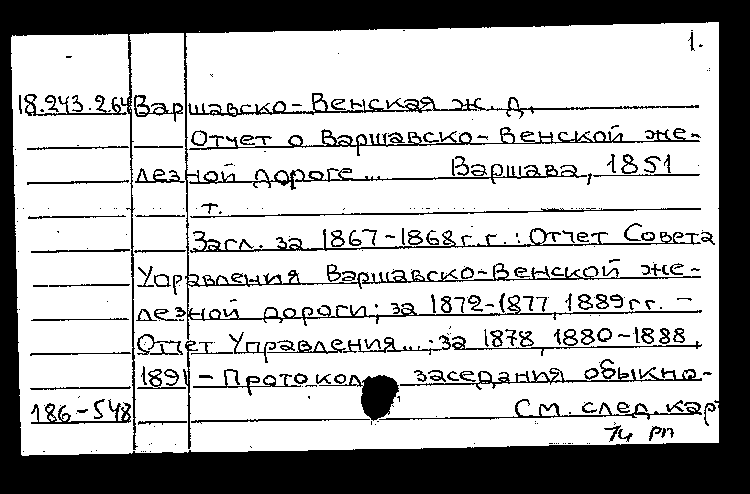 1.
18.243.264 Варшавско-Венская ж. д.
Отчет о Варшавско-Венской же-
лезной дороге... Варшава, 1851
т.
Загл. за 1867-1868 г.г.: Отчет Совета
Управления Варшавско-Венской же-
лезной дороги; за 1872-1877, 1889 гг. -
Отчет Управления...; за 1878, 1880-1888,
1891 - Протокол заседания обыкно-
186-548 См. след. кар
74 рп